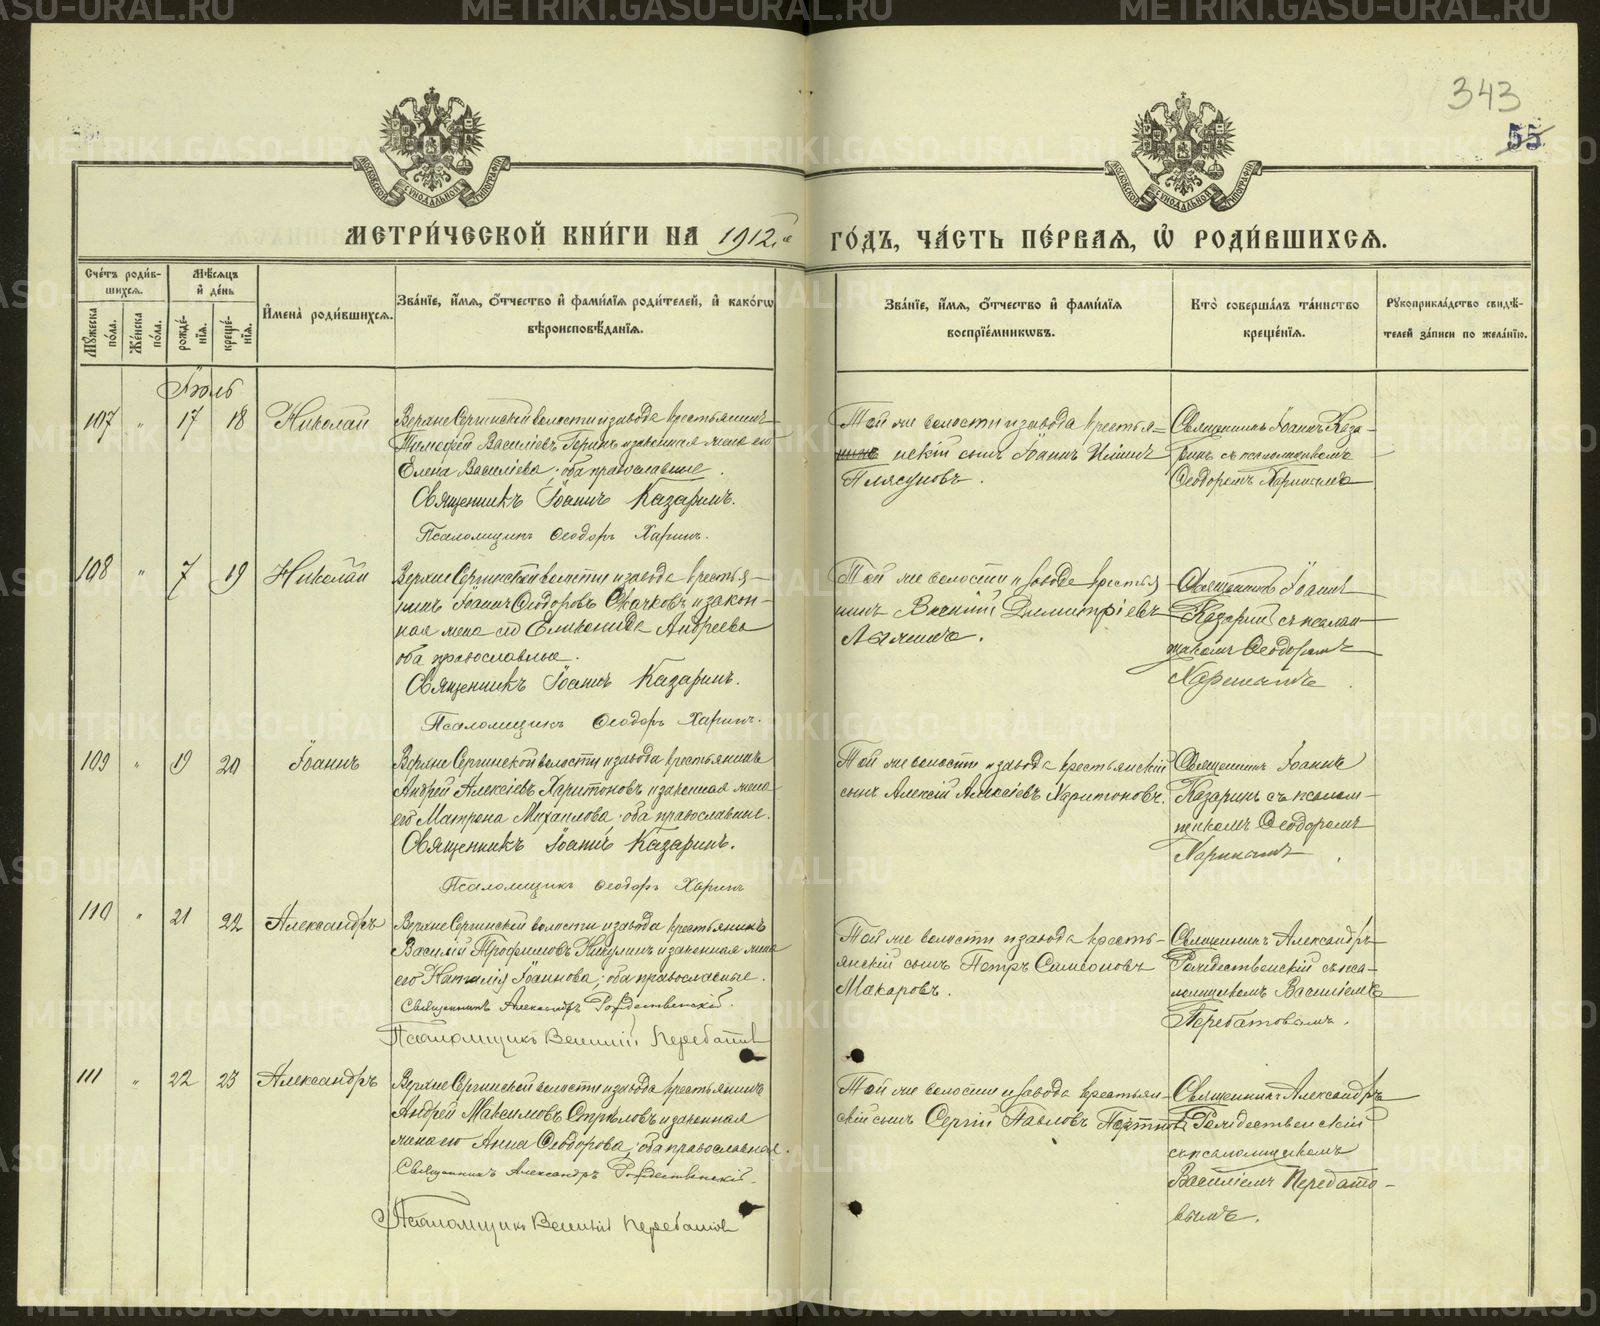 343
55
МОСКОВСКОЙ СѴНОДАЛЬНОЙ ТИПОГРАФІИ
МОСКОВСКОЙ СѴНОДАЛЬНОЙ ТИПОГРАФІИ
МЕТРИ́ЧЕСКОЙ КНИ́ГИ НА 1912й
ГО́ДЪ, ЧА́СТЬ ПЕ́РВАѦ, Ѡ҆ РОДИ́ВШИХСѦ.
Сче́тъ роди́вшихсѧ.
Мѣ́сѧцъ и҆ де́нь
Мꙋ́жеска по́ла.
Же́нска по́ла.
рожде́нїѧ.
креще́нїѧ.
И҆мена̀ роди́вшихсѧ.
Зва́нїе, и҆́мѧ, ѻ҆́тчество и҆ фами́лїѧ роди́телей, и҆ како́гѡ вѣроисповѣ́данїѧ.
Зва́нїе, и҆́мѧ, ѻ҆́тчество и҆ фами́лїѧ воспрїе́мникѡвъ.
Кто̀ соверша́лъ та́инство креще́нїѧ.
Рꙋкоприкла́дство свидѣ́телей за́писи по жела́нїю.
Іюль
107 " 17 18 Николай
Верхне Сергинской волости и завода крестьянинъ
Тимофей Васильевъ и законная жена его
Елена Васильева, оба православные.
Священникъ Іоаннъ Казаринъ.
Псаломщикъ Ѳеодоръ Харинъ.
Той же волости и завода крестья=
нскій сынъ Іоаннъ Ильинъ
Плясуновъ.
Священникъ Іоаннъ Каза-
ринъ съ псаломщикомъ
Ѳеодоромъ Харинымъ
108 " 7 19 Николай
Верхне Сергинской волости и завода крестья-
нинъ Іоаннъ Ѳеодоровъ и закон-
ная жена его Еликонида Андреева
оба православные.
Священникъ Іоаннъ Казаринъ.
Псаломщикъ Ѳеодоръ Харинъ.
Той же волости и завода крестья
нинъ Димитріевъ
Священникъ Іоаннъ
Казаринъ съ псалом-
щикомъ Ѳеодоромъ
Харинымъ.
109 " 19 20 Іоаннъ
Верхне Сергинской волости и завода крестьянинъ
Андрей Алексіевъ Харитоновъ и законная жена
его Матрона Михаилова, оба православные.
Священникъ Іоаннъ Казаринъ.
Псаломщикъ Ѳеодоръ Харинъ
Той же волости и завода крестьянскій
сынъ Алексій Алексіевъ Харитоновъ.
Священникъ Іоаннъ
Казаринъ съ псалом-
щикомъ Ѳеодоромъ
Харинымъ.
110 " 21 22 Александръ
Верхне Сергинской волости и завода крестьянинъ
Василій Трофимовъ Никулинъ и законная жена
его Наталія Іоаннова, оба православные.
Священникъ Александръ Рождественскій.
Псаломщикъ Василій Перебатовъ
Той же волости и завода кресть-
янскій сынъ Петръ Самсоновъ
Макаровъ.
Священникъ Александръ
Рождественскій съ пса-
ломщикомъ Василіемъ
Перебатовымъ.
111 " 22 23 Александръ
Верхне Сергинской волости и завода крестьянинъ
Андрей Максимовъ Стрѣловъ и законная
жена его Анна Ѳеодорова, оба православные.
Священникъ Александръ Рождественскій.
Псаломщикъ Василій Перебатовъ
Той же волости и завода крестьян-
скій сынъ Сергій Павловъ
Священникъ Александръ
Рождественскій
съ псаломщикомъ
Василіемъ Перебато-
вымъ.
METRIKI.GASO-URAL.RU